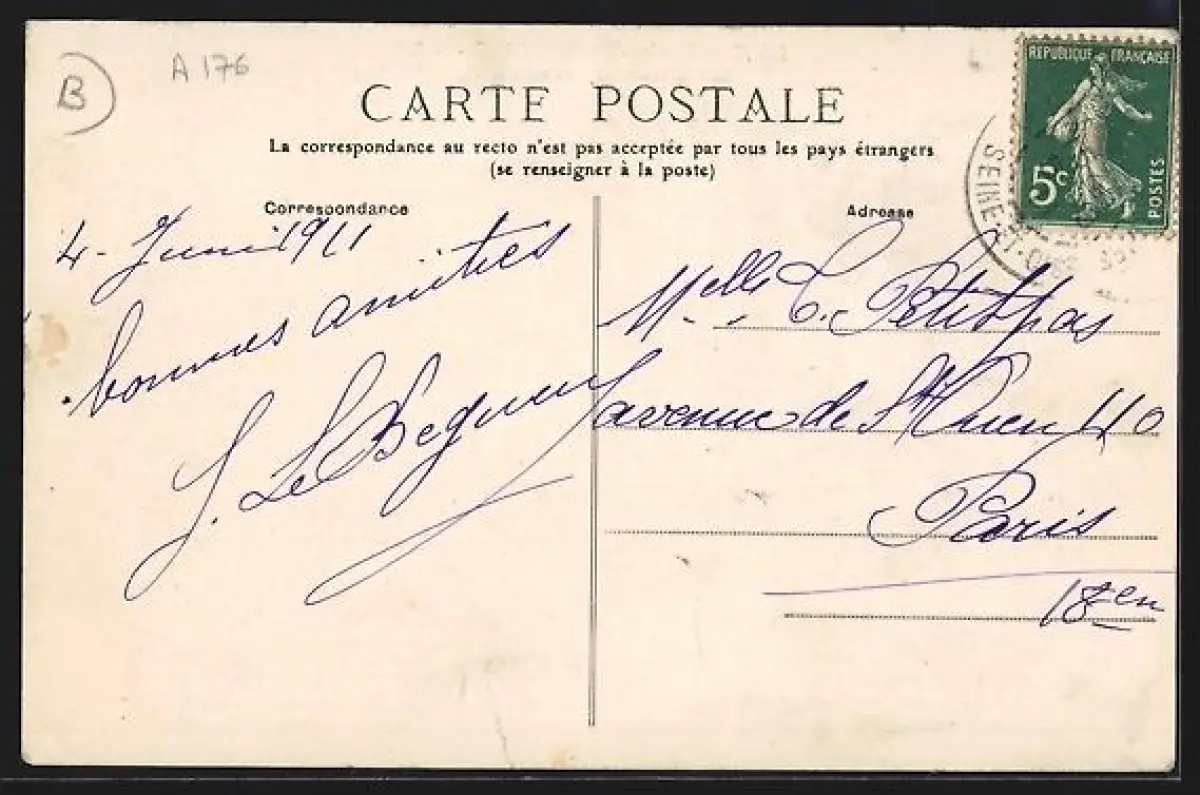 B
A 176
CARTE POSTALE
La correspondance au recto n'est pas acceptée par tous les pays étrangers
(se renseigner à la poste)
Correspondance
4 - Juin 1911
bonnes amitiés
J. Le
Adresse
Melle C. Petitpas
avenue de St Ouen 110
Paris
18en
REPUBLIQUE FRANÇAISE
5c
POSTES
SEINE-ET-OISE